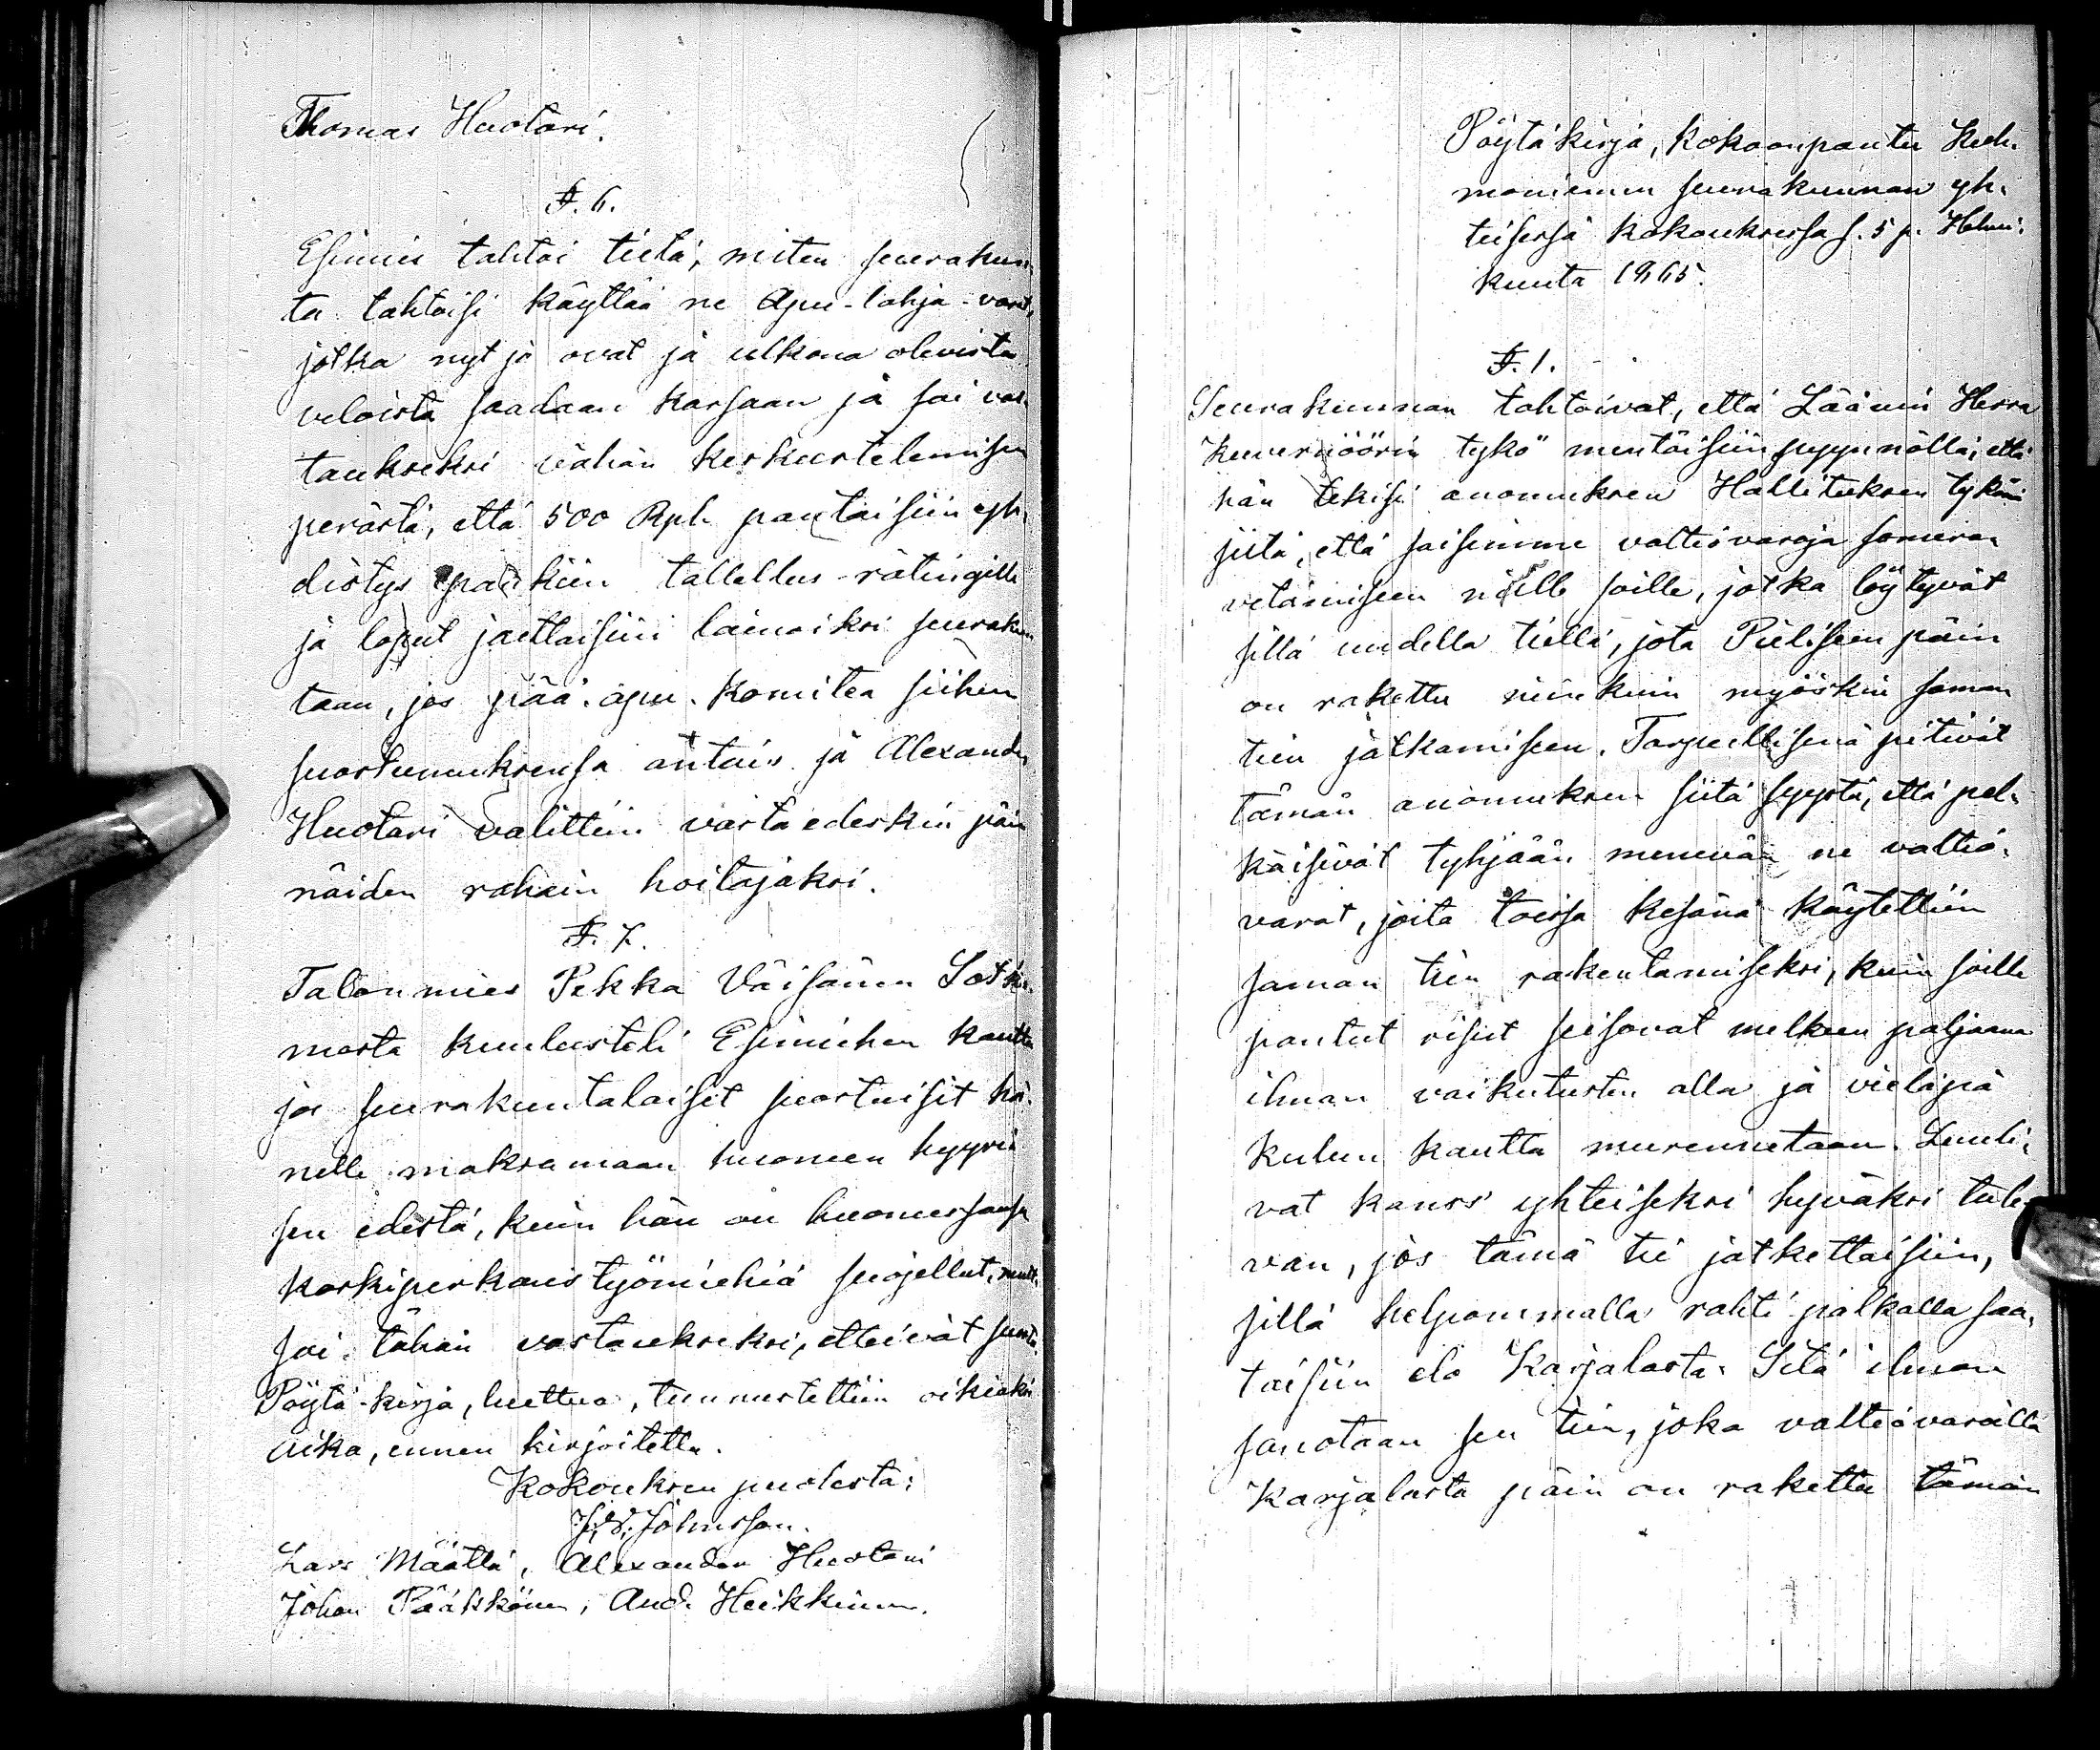 Thomas Huotari.
§. 6.
Esimies tahtoi tietä, miten seurakun-
ta tahtoisi käyttää ne Apu-lahja-varat,
jotka nyt jo ovat ja ulkona olevista
veloista saadaan kassaan ja sai vas-
taukseksi vähän keskustelemisen
perästä, että 500 Rpl. pantaisiin yh-
distys pankiin tallellus-rätingille
ja loput jaettaisiin lainaiksi seurakun-
taan, jos pää-apu-komitea siihen
suostumuksensa antais ja Alexander
Huotari valittiin vasta edeskin päin
näiden rahain hoitajaksi.
§. 7.
Talonmies Pekka Väisänen Sotka-
mosta kuulusteli Esimiehen kautta
jos seurakuntalaiset suostuisit hä-
nelle maksamaan huoneen hyyriä
sen edestä, kuin hän on huoneessansa
koskiperkaus työmiehiä suojellut, mutta
sai tähän vastaukseksi, etteivät suostu.
Pöytä-kirja, luettua, tunnustettiin oikiaksi
aika, ennen kirjoitettu.
Kokouksen puolesta:
Johnsson.
Lars Määttä, Alexander Huotari
Johan Pääkkönen, And. Heikkinen.
Pöytäkirja, kokoonpantu Kuh-
moniemen seurakunnan yh-
teisessä kokouksessa s. 5 p. Helmi-
kuuta 1865.
§. 1.
Seurakunnan tahtoivat, että Läänin Herra
Kuvernöörin tykö mentäisiin pyynnöllä, että
hän tekisi anomuksen Hallituksen tykönä
siitä, että saisimme valtiovaroja someran
vetämiseen niille soille, jotka löytyvät
sillä uudella tiellä, jota Pieliseen päin
on rakettu niinkuin myöskin saman
tien jatkamiseen. Tarpeellisenä pitivät
tämän anomuksen siitä syystä, että pel-
käisivät tyhjään menevän ne valtio-
varat, joita toissa kesänä käytettiin
saman tien rakentamiseksi, kuin soille
pantut risut seisovat melkeen paljaana
ilman vaikutusten alla ja vieläpä
kulun kautta murennetaan. Luuli-
vat kanss' yhteiseksi hyväksi tule-
van, jos tämä tie jatkettaisiin,
sillä helpommalla rahti palkalla saa-
taisiin elo Karjalasta. Sitä ilman
sanotaan sen tien, joka valtiovaroilla
Karjalasta päin on rakettu tämän